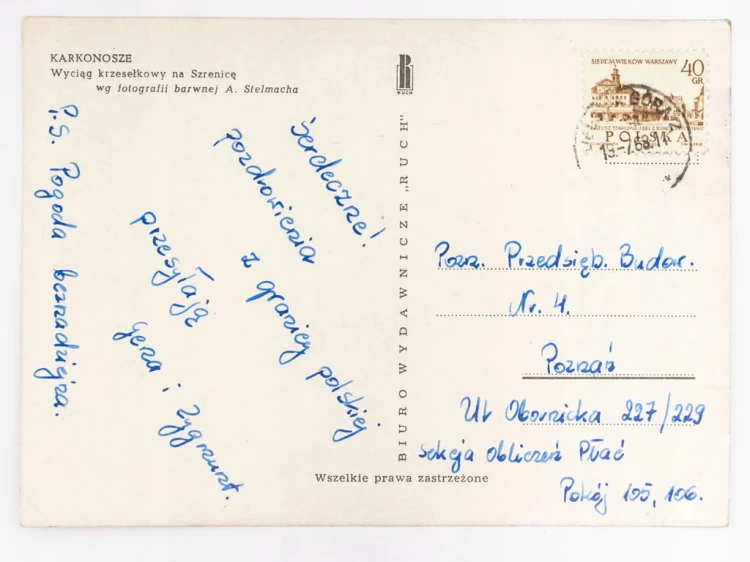 KARKONOSZE
Wyciąg krzesełkowy na Szrenicę
wg fotografii barwnej A. Stelmacha
RUCH
SIEDEM WIEKÓW WARSZAWY
40
GR
POLSKA
19.-7.68.11
Serdeczne!
pozdrowienia
z granicy polskiej
przesyłają
Gena i Zygmunt.
P.S. Pogoda beznadziejna.
BIURO WYDAWNICZE „RUCH"
Pozn. Przedsięb. Budow.
Nr. 4.
Poznań
Ul Obornicka 227/229
Sekcja Obliczeń Płac
Pokój 105, 106.
Wszelkie prawa zastrzeżone